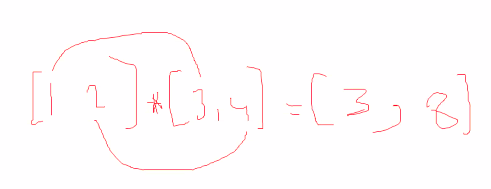 [1 2] * [3,4] = [3, 8]